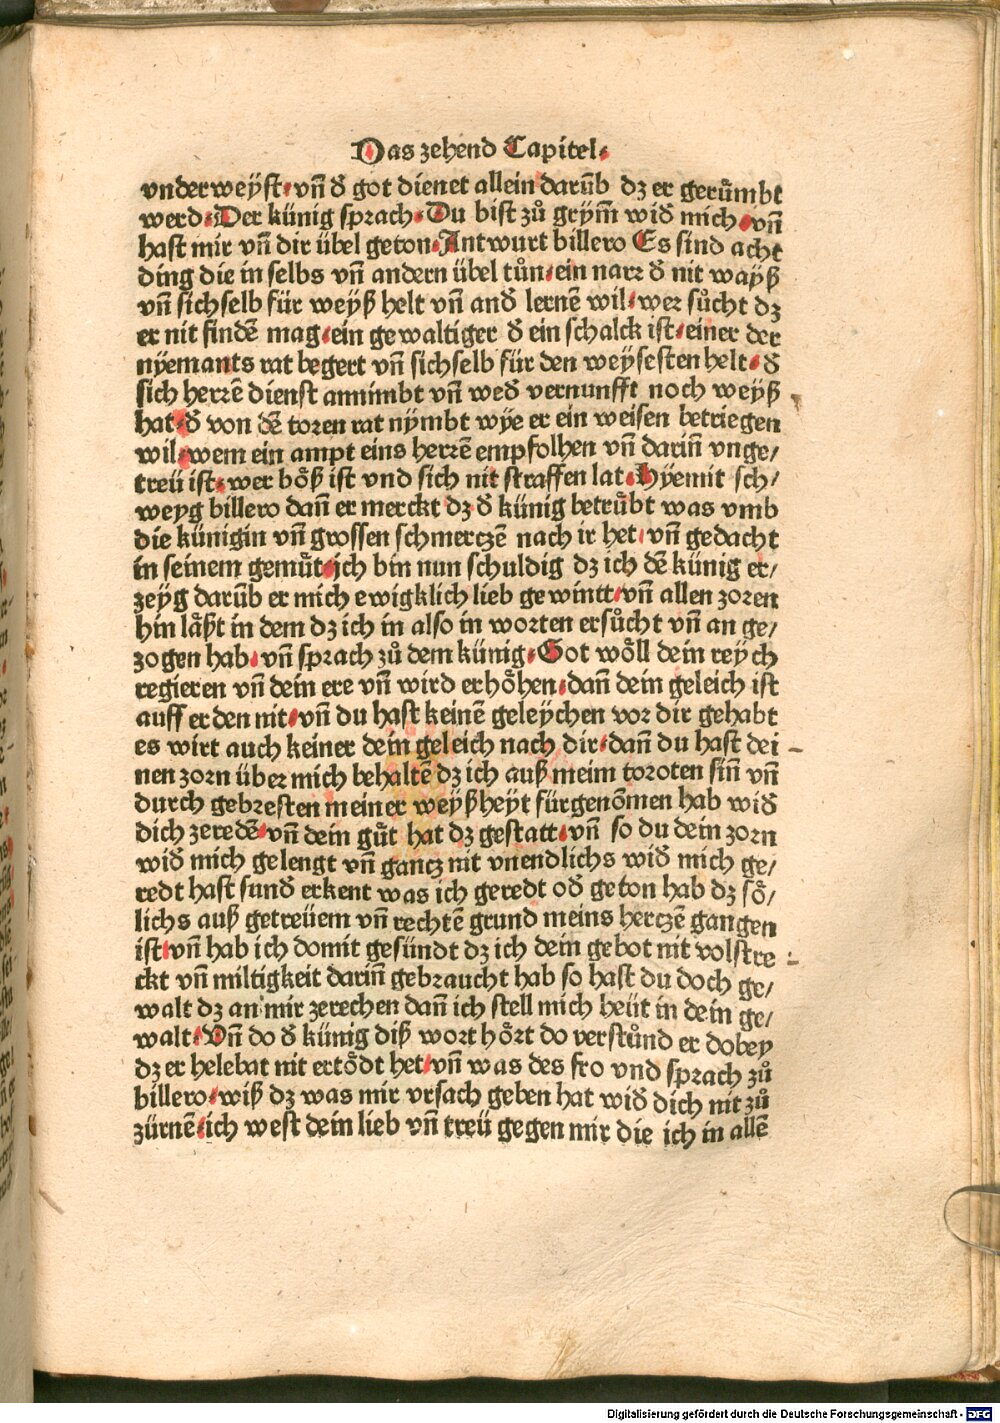 Das zehend Capitel·
vnderweÿst·vn̄ d̕ got dienet allein darūb dz er gerůmbt
werd·Der künig sprach·Du bist zů grÿm̄ wid̕ mich·vn̄
hast mir vn̄ dir übel geton·Antwurt billero Es sind acht
ding die in selbs vn̄ andern übel tůn·ein narr d̕ nit waÿß
vn̄ sichselb für weÿß helt vn̄ and̕ lernē wil·wer sůcht dz
er nit findē mag·ein gewaltiger d̕ ein schalck ist·einer der
nÿemants rat begert vn̄ sichselb für den weÿsesten helt·d̕
sich herrē dienst annimbt vn̄ wed̕ vernunfft noch weÿß
hat·d̕ von dē toren rat nÿmbt wÿe er ein weisen betriegen
wil·wem ein ampt eins herrē empfolhen vn̄ darin̄ vnge/
treü ist·wer bo̊ß ist vnd sich nit straffen lat·Hÿemit sch/
weyg billero dan̄ er merckt dz d̕ künig betrůbt was vmb
die künigin vn̄ grossen schmerczē nach ir het·vn̄ gedacht
in seinem gemůt·ich bin nun schuldig dz ich dē künig er/
zeÿg darūb er mich ewigklich lieb gewintt·vn̄ allen zoren
hin låßt in dem dz ich in also in worten ersůcht vn̄ an ge/
zogen hab·vn̄ sprach zů dem künig·Got wo̊ll dein reÿch
regieren vn̄ dein ere vn̄ wird erho̊hen·dan̄ dein geleich ist
auff erden nit·vn̄ du hast keinē geleÿchen vor dir gehabt
es wirt auch keiner dein geleich nach dir·dan̄ du hast dei
nen zorn über mich behaltē dz ich auß meim toroten sin̄ vn̄
durch gebresten meiner weÿßheÿt fürgenōmen hab wid̕
dich zeredē·vn̄ dein gůt hat dz gestatt·vn̄ so du dein zorn
wid̕ mich gelengt vn̄ gancz nit vnendlichs wid̕ mich ge/
redt hast sund̕ erkent was ich geredt od̕ geton hab dz so̊/
lichs auß getreüem vn̄ rechtē grund meins herczē gangen
ist·vn̄ hab ich domit gesündt dz ich dein gebot nit volstre
ckt vn̄ miltigkeit darin̄ gebraucht hab so hast du doch ge/
walt dz an mir zerechen dan̄ ich stell mich heüt in dein ge/
walt·Vn̄ do d̕ künig diß wort ho̊rt do verstůnd er dobey
dz er helebat nit erto̊dt het·vn̄ was des fro vnd sprach zů
billero·wiß dz was mir vrsach geben hat wid̕ dich nit zů
zürnē·ich west dein lieb vn̄ treü gegen mir die ich in allē
Digitalisierung gefördert durch die Deutsche Forschungsgemeinschaft - DFG